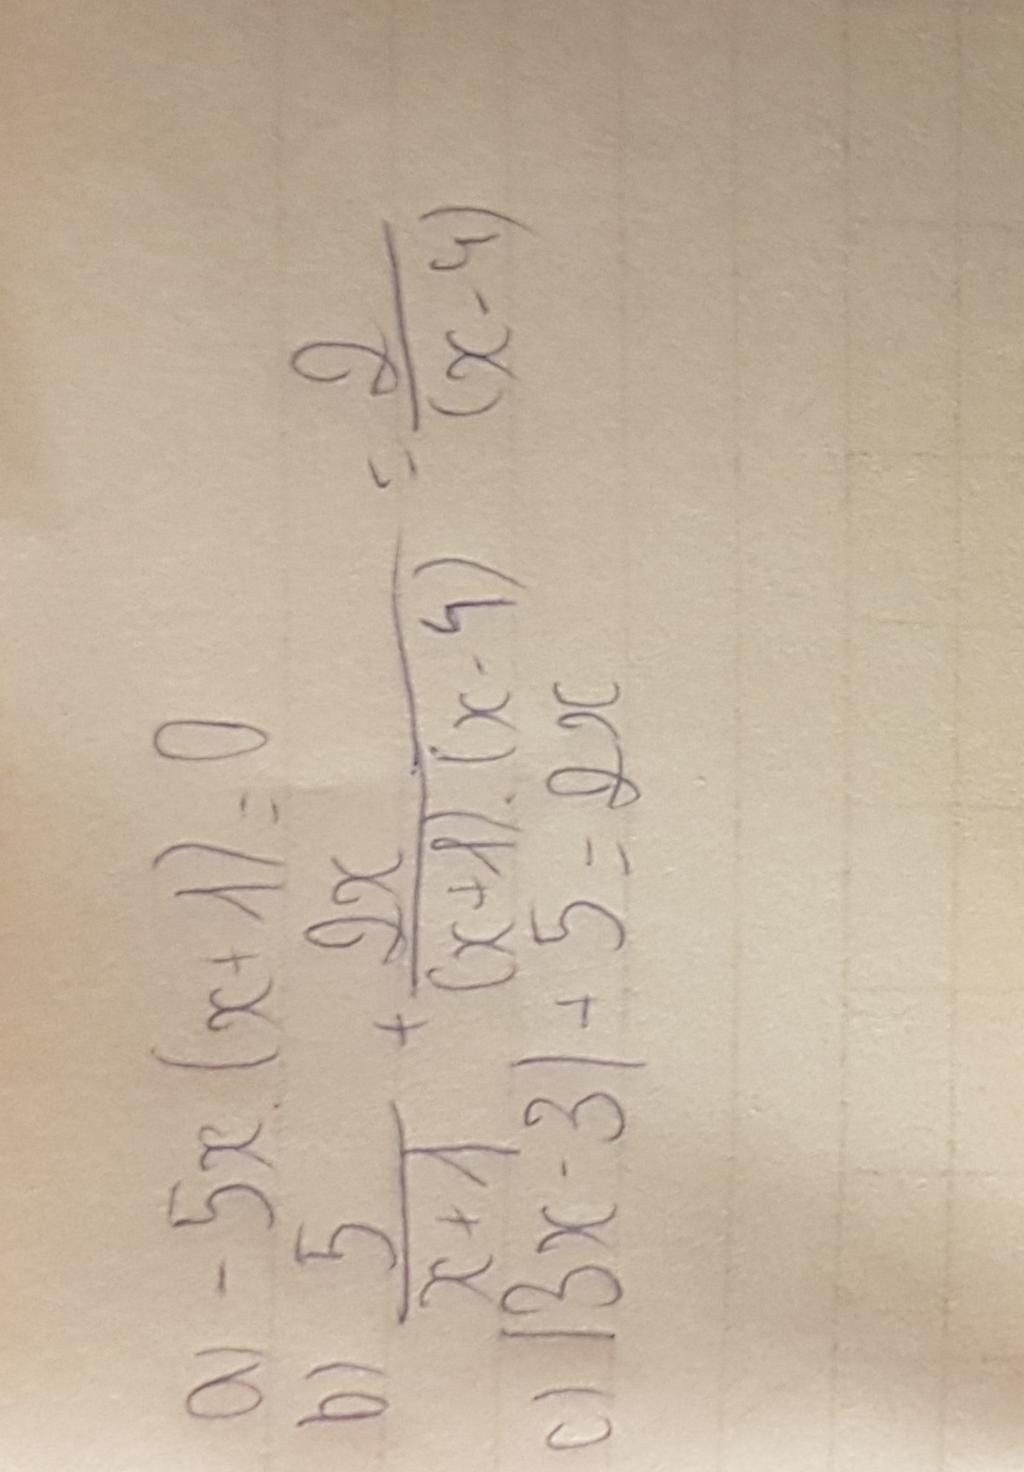 a) -5x.(x+1)=0
b) 5/(x+1) + 2x/((x+1).(x-4)) = 2/(x-4)
c) |3x-3|+5=2x